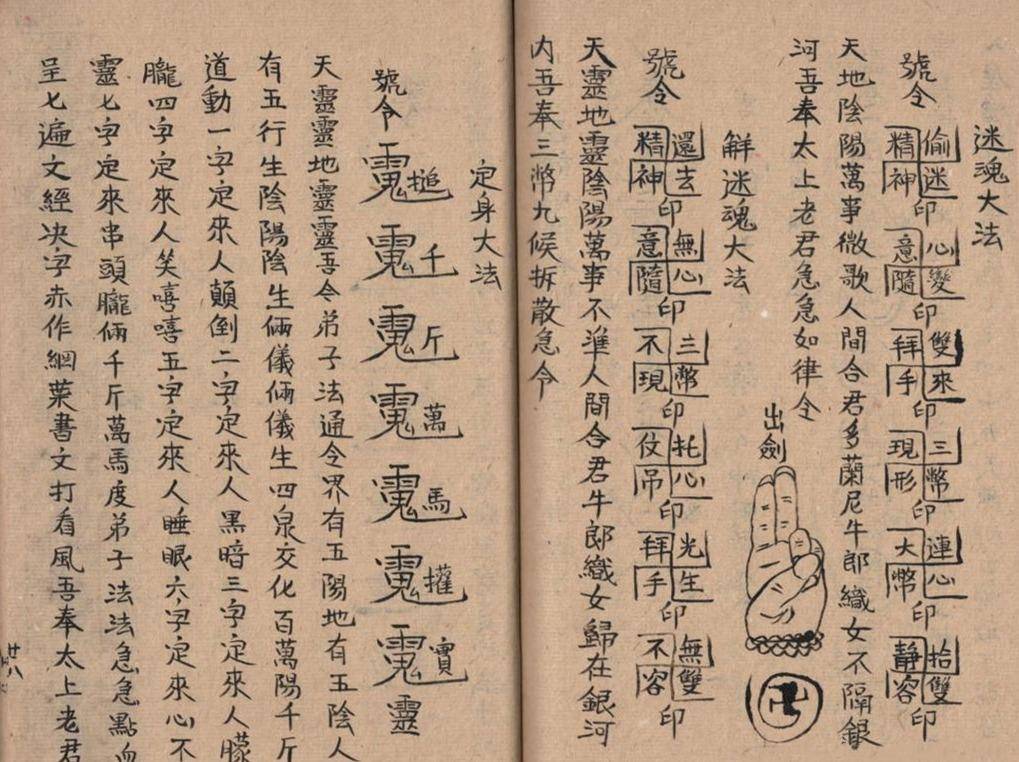 迷魂大法
號令
偷迷精神印
心變意隨印
雙來拜手印
三幣現形印
連心大幣印
拾雙靜容印
天地陰陽萬事微歌人間合君多蘭尼牛郎織女不隔銀
河吾奉太上老君急急如律令
出劍
卍
解迷魂大法
號令
還去精神印
無心意隨印
三幣不現印
托心仗吊印
光生拜手印
無雙不容印
天靈地靈陰陽萬事不準人間合君牛郎織女歸在銀河
内吾奉三幣九候拆散急令
定身大法
號令
搥
千
斤
萬
馬
寶
靈
天靈靈地靈靈吾令弟子法通令界有五陽地有五陰人
有五行生陰陽陰生倆儀倆儀生四泉交化百萬陽千斤
道動一字定來人顛倒二字定來人黑暗三字定來人朦
朧四字定來人笑嘻嘻五字定來人睡眠六字定來心不
靈七字定來串頭朧倆千斤萬馬度弟子法法急急點血
呈七遍文經决字赤作綑葉書文打看風吾奉太上老君
廿八